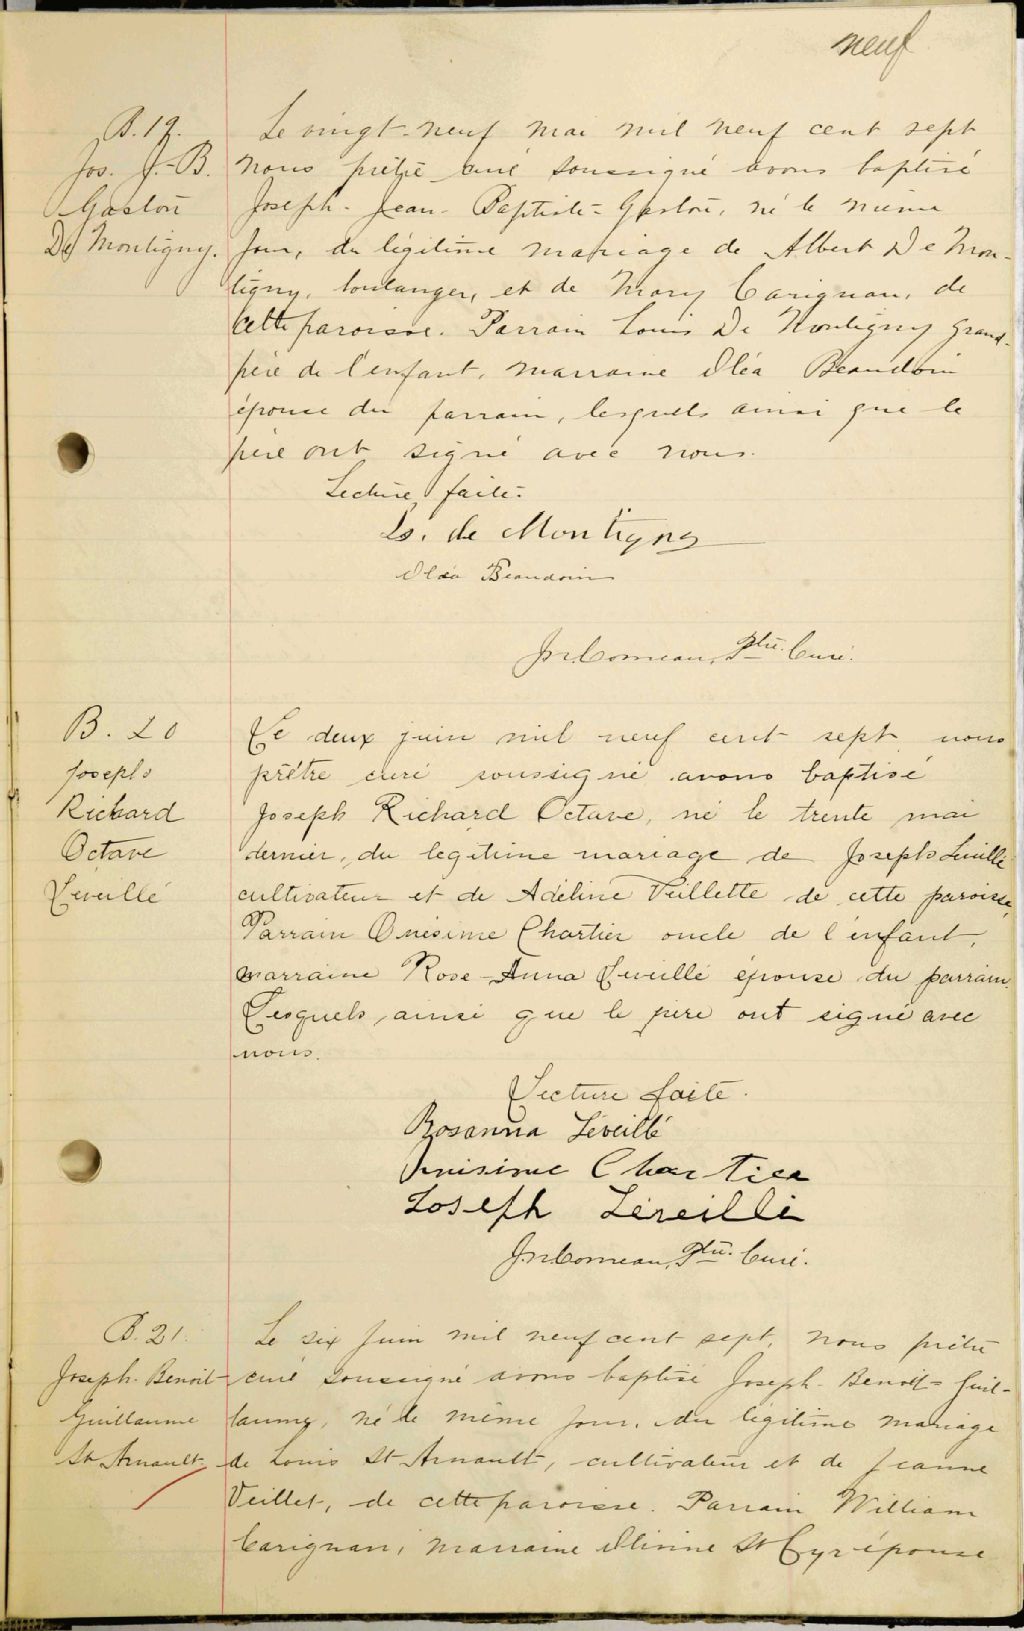 neuf
B. 19.
Jos. J.-B.
Gaston
De Montigny.
Le vingt-neuf mai mil neuf cent sept
nous prêtre curé soussigné avons baptisé
Joseph-Jean-Baptiste-Gaston, né le même
jour, du légitime mariage de Albert De Mon-
tigny, boulanger, et de Mary Carignan, de
cette paroisse. Parrain Louis De Montigny grand-
père de l'enfant, marraine Oléa Beaudoin
épouse du parrain, lesquels ainsi que le
père ont signé avec nous.
Lecture faite.
Ls. de Montigny
Oléa Beaudoin
Comeau, Ptre. Curé.
B. 20
Joseph
Richard
Octave
Léveillé
Le deux juin mil neuf cent sept nous
prêtre curé soussigné avons baptisé
Joseph Richard Octave, né le trente mai
dernier, du légitime mariage de Joseph Léveillé
cultivateur et de Adéline Veillette de cette paroisse,
Parrain Onésime Chartier oncle de l'enfant,
marraine Rose-Anna Léveillé épouse du parrain.
Lesquels, ainsi que le père ont signé avec
nous.
Lecture faite.
Rosanna Léveillé
Onisime Chartier
Joseph Léveillé
Comeau, Ptre. Curé.
B. 21.
Joseph-Benoit-
Guillaume
St Arnault
Le six juin mil neuf cent sept, nous prêtre
curé soussigné avons baptisé Joseph-Benoît-Guil-
laume, né le même jour, du légitime mariage
de Louis St Arnault, cultivateur et de Jeanne
Veillet, de cette paroisse. Parrain William
Carignan, marraine St Cyr épouse